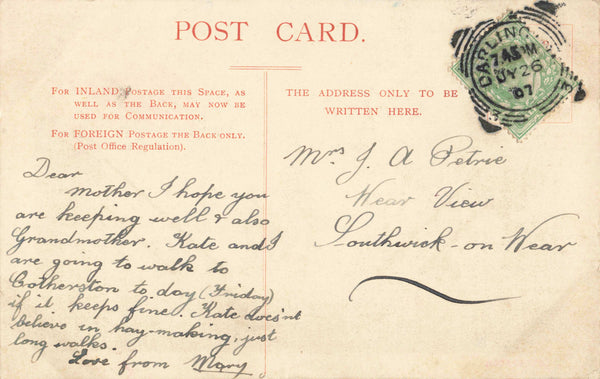 POST CARD.
FOR INLAND POSTAGE THIS SPACE, AS
WELL AS THE BACK, MAY NOW BE
USED FOR COMMUNICATION.
FOR FOREIGN POSTAGE THE BACK ONLY.
(Post Office Regulation).
THE ADDRESS ONLY TO BE
WRITTEN HERE.
DARLINGTON
7.45 AM
JY 26
07
Dear
Mother I hope you
are keeping well & also
Grandmother. Kate and I
are going to walk to
Cotherston to day (Friday)
if it keeps fine. Kate does'nt
believe in hay-making, just
long walks.
Love from Mary
Mrs J. A Petrie
Wear View
Southwick-on Wear